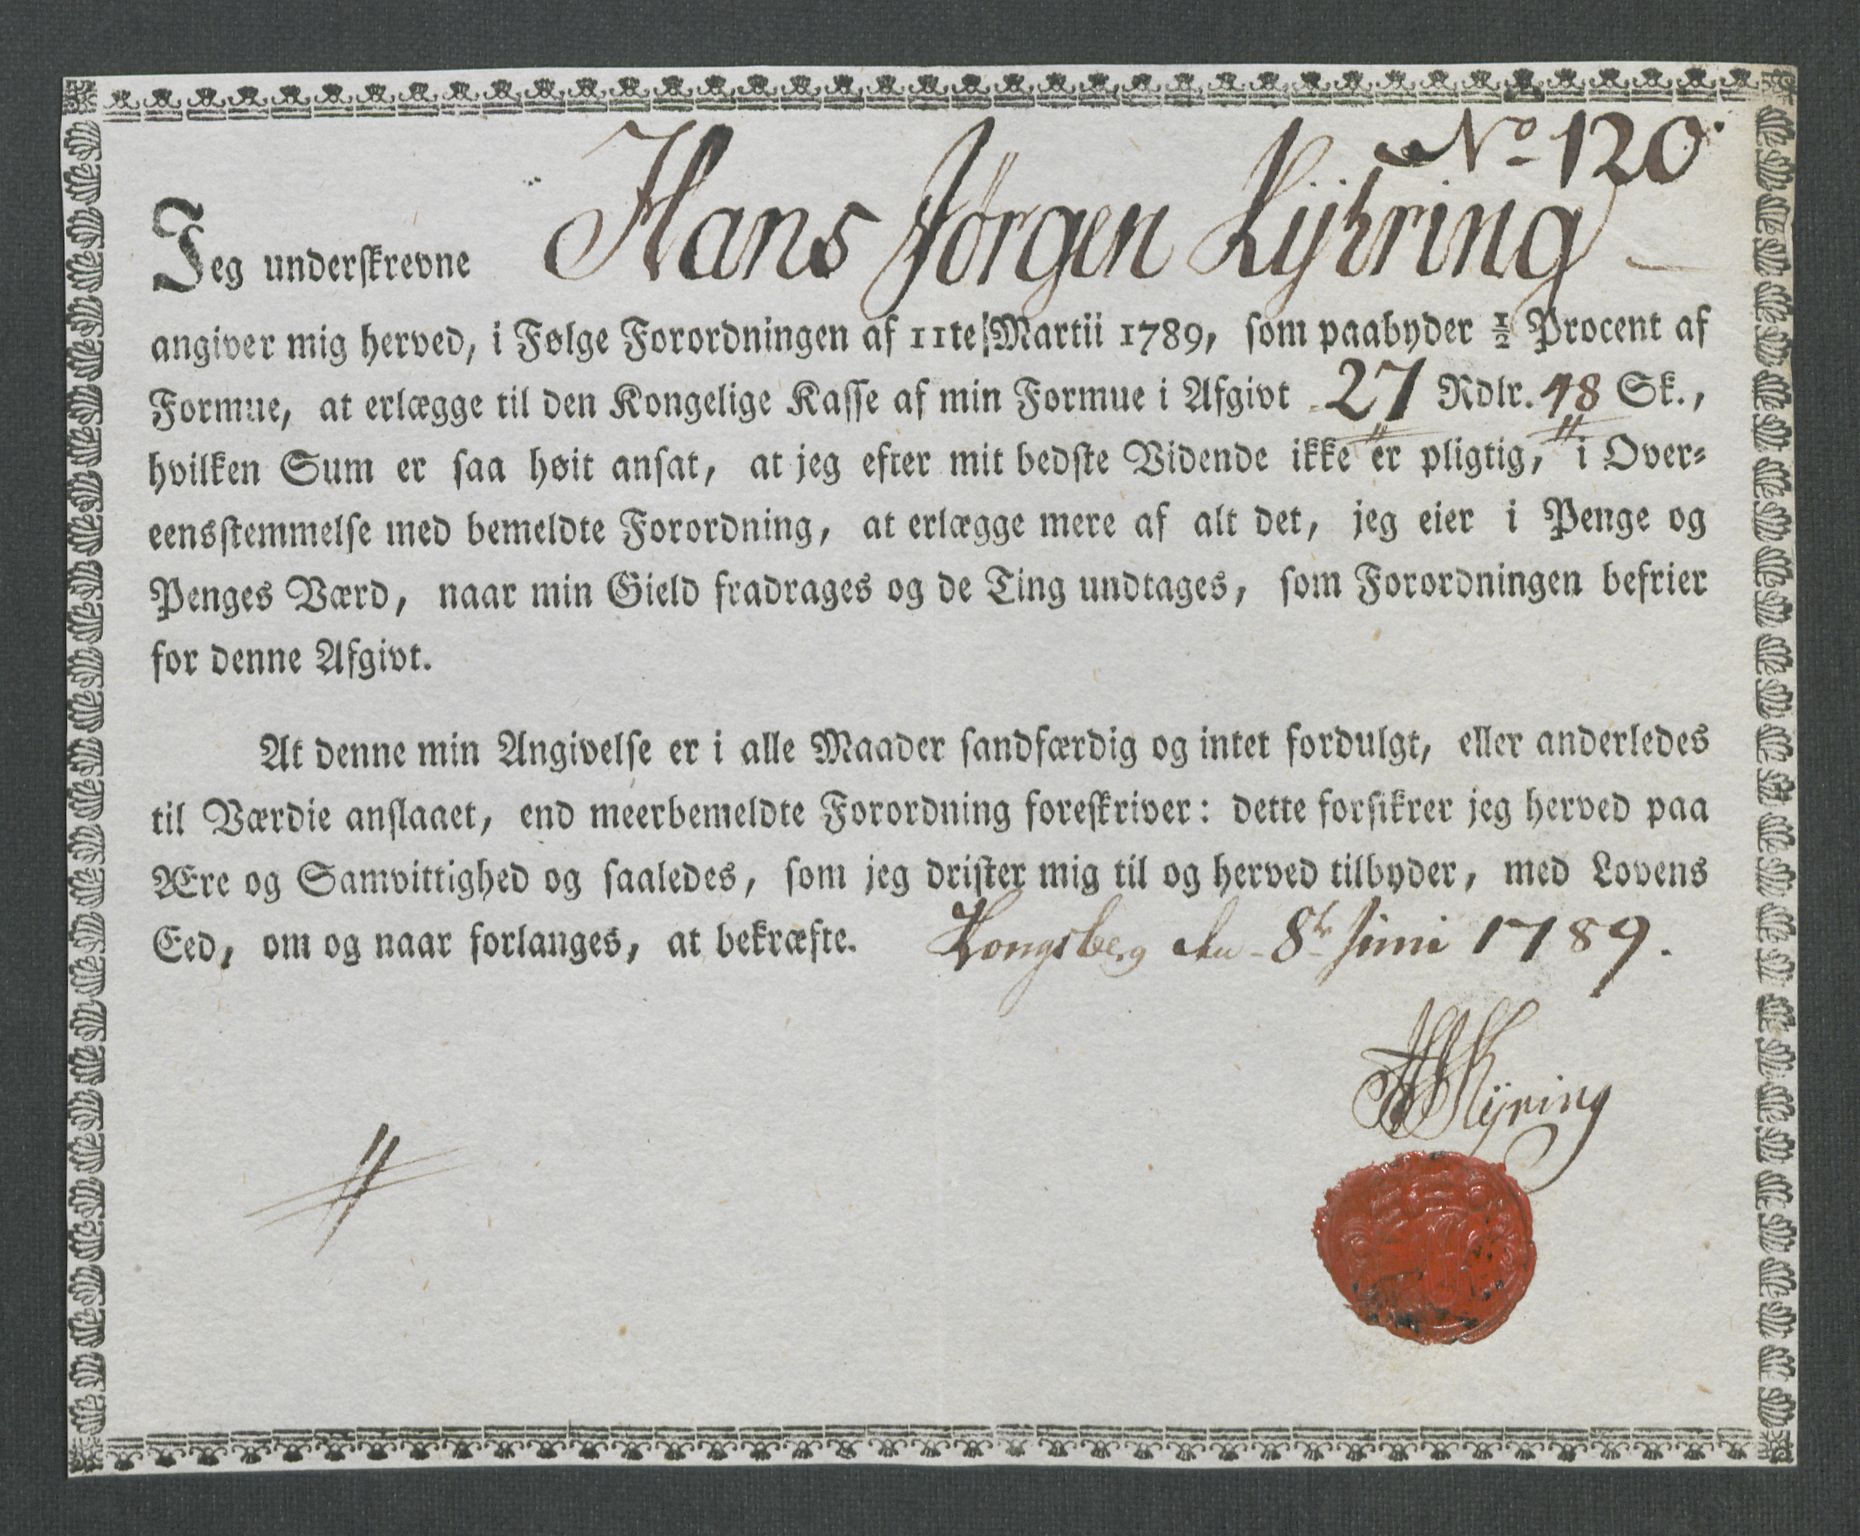 No 120.
Jeg underskrevne Hans Jørgen Kÿhring
angiver mig herved, i Følge Forordningen af 11te Martii 1789, som paabyder ½ Procent af
Formue, at erlægge til den Kongelige Kasse af min Formue i Afgivt 27 Rdlr. 48 Sk.,
hvilken Sum er saa høit ansat, at jeg efter mit bedste Vidende ikke er pligtig, i Over-
eensstemmelse med bemeldte Forordning, at erlægge mere af alt det, jeg eier i Penge og
Penges Værd, naar min Gield fradrages og de Ting undtages, som Forordningen befrier
for denne Afgivt.
At denne min Angivelse er i alle Maader sandfærdig og intet fordulgt, eller anderledes
til Værdie anslaaet, end meerbemeldte Forordning foreskriver: dette forsikrer jeg herved paa
Ære og Samvittighed og saaledes, som jeg drister mig til og herved tilbyder, med Lovens
Eed, om og naar forlanges, at bekræfte. Kongsberg den 8te Juni 1789.
HJKÿring